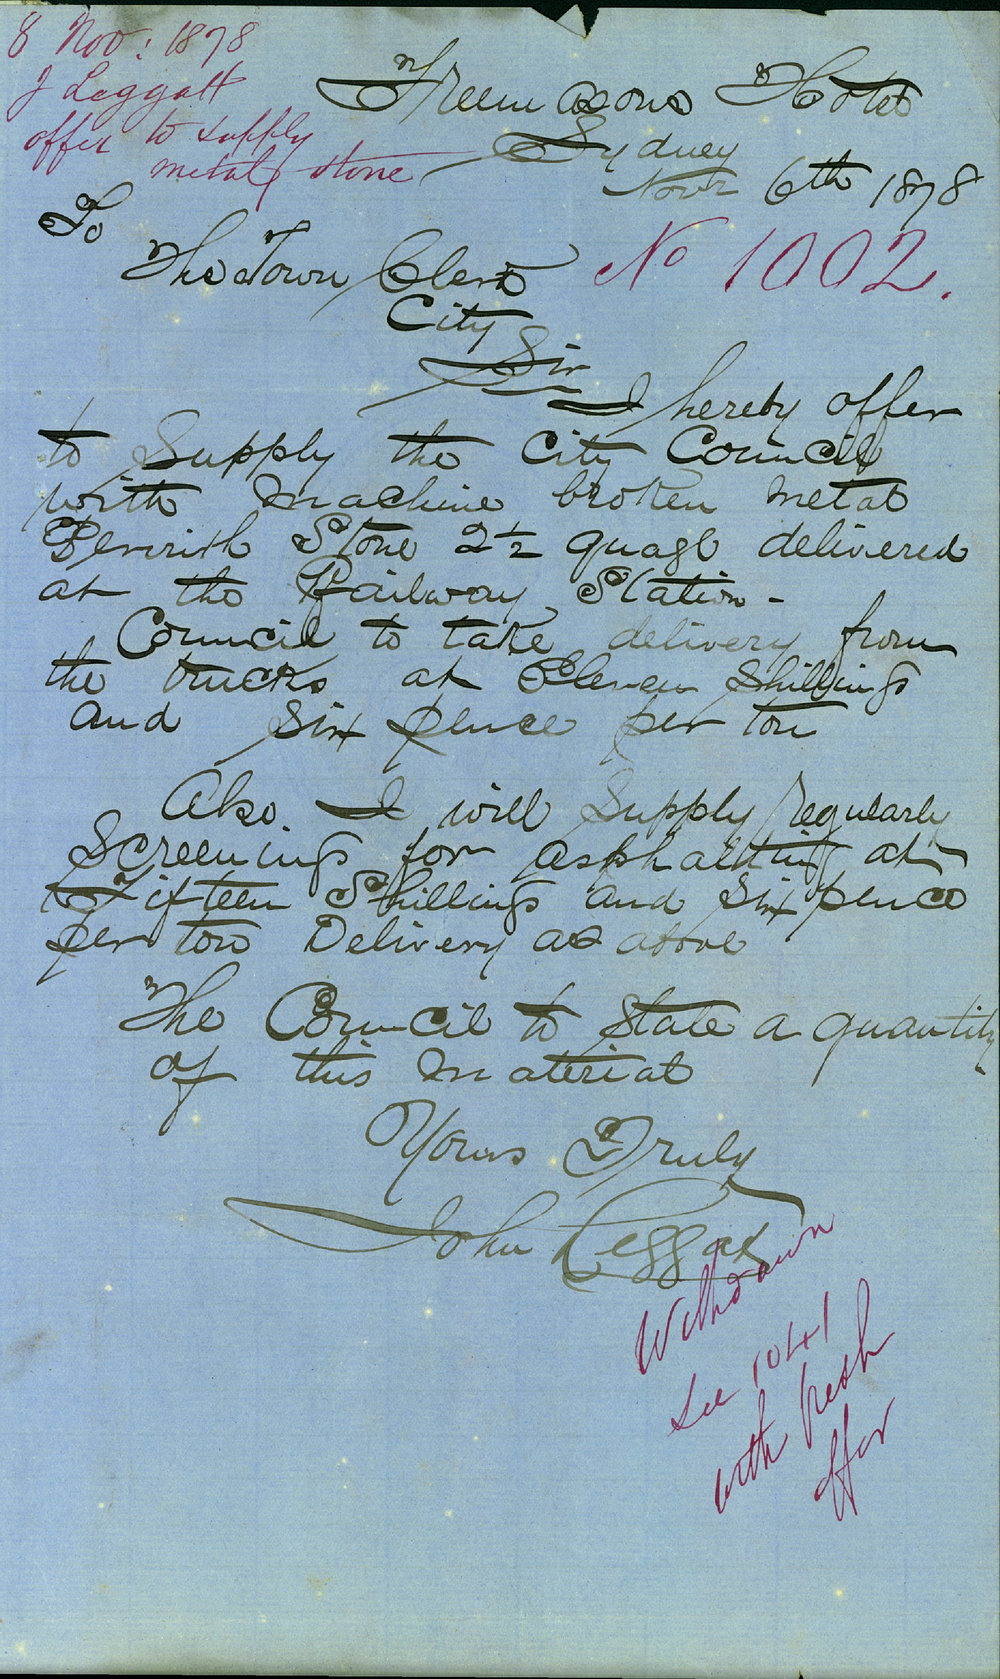 8 Nov: 1878
J Leggatt
offer to supply
metal stone
Freemasons Hotel
Sydney
Novr 6th 1878
No 1002.
To
The Town Clerk
City
Sir
I hereby offer
to Supply the City Council
with machine broken metal
Stone 2 1/2 delivered
at the Railway Station -
Council to take delivery from
the trucks at Eleven Shillings
and six pence per ton
Also I will Supply regularly
Screenings for asphalting at
Fifteen Shillings and six pence
per ton Delivery as above
The Council to State a quantity
of this material
Yours Truly
John Leggat
Withdrawn
See 1041
with fresh
offer